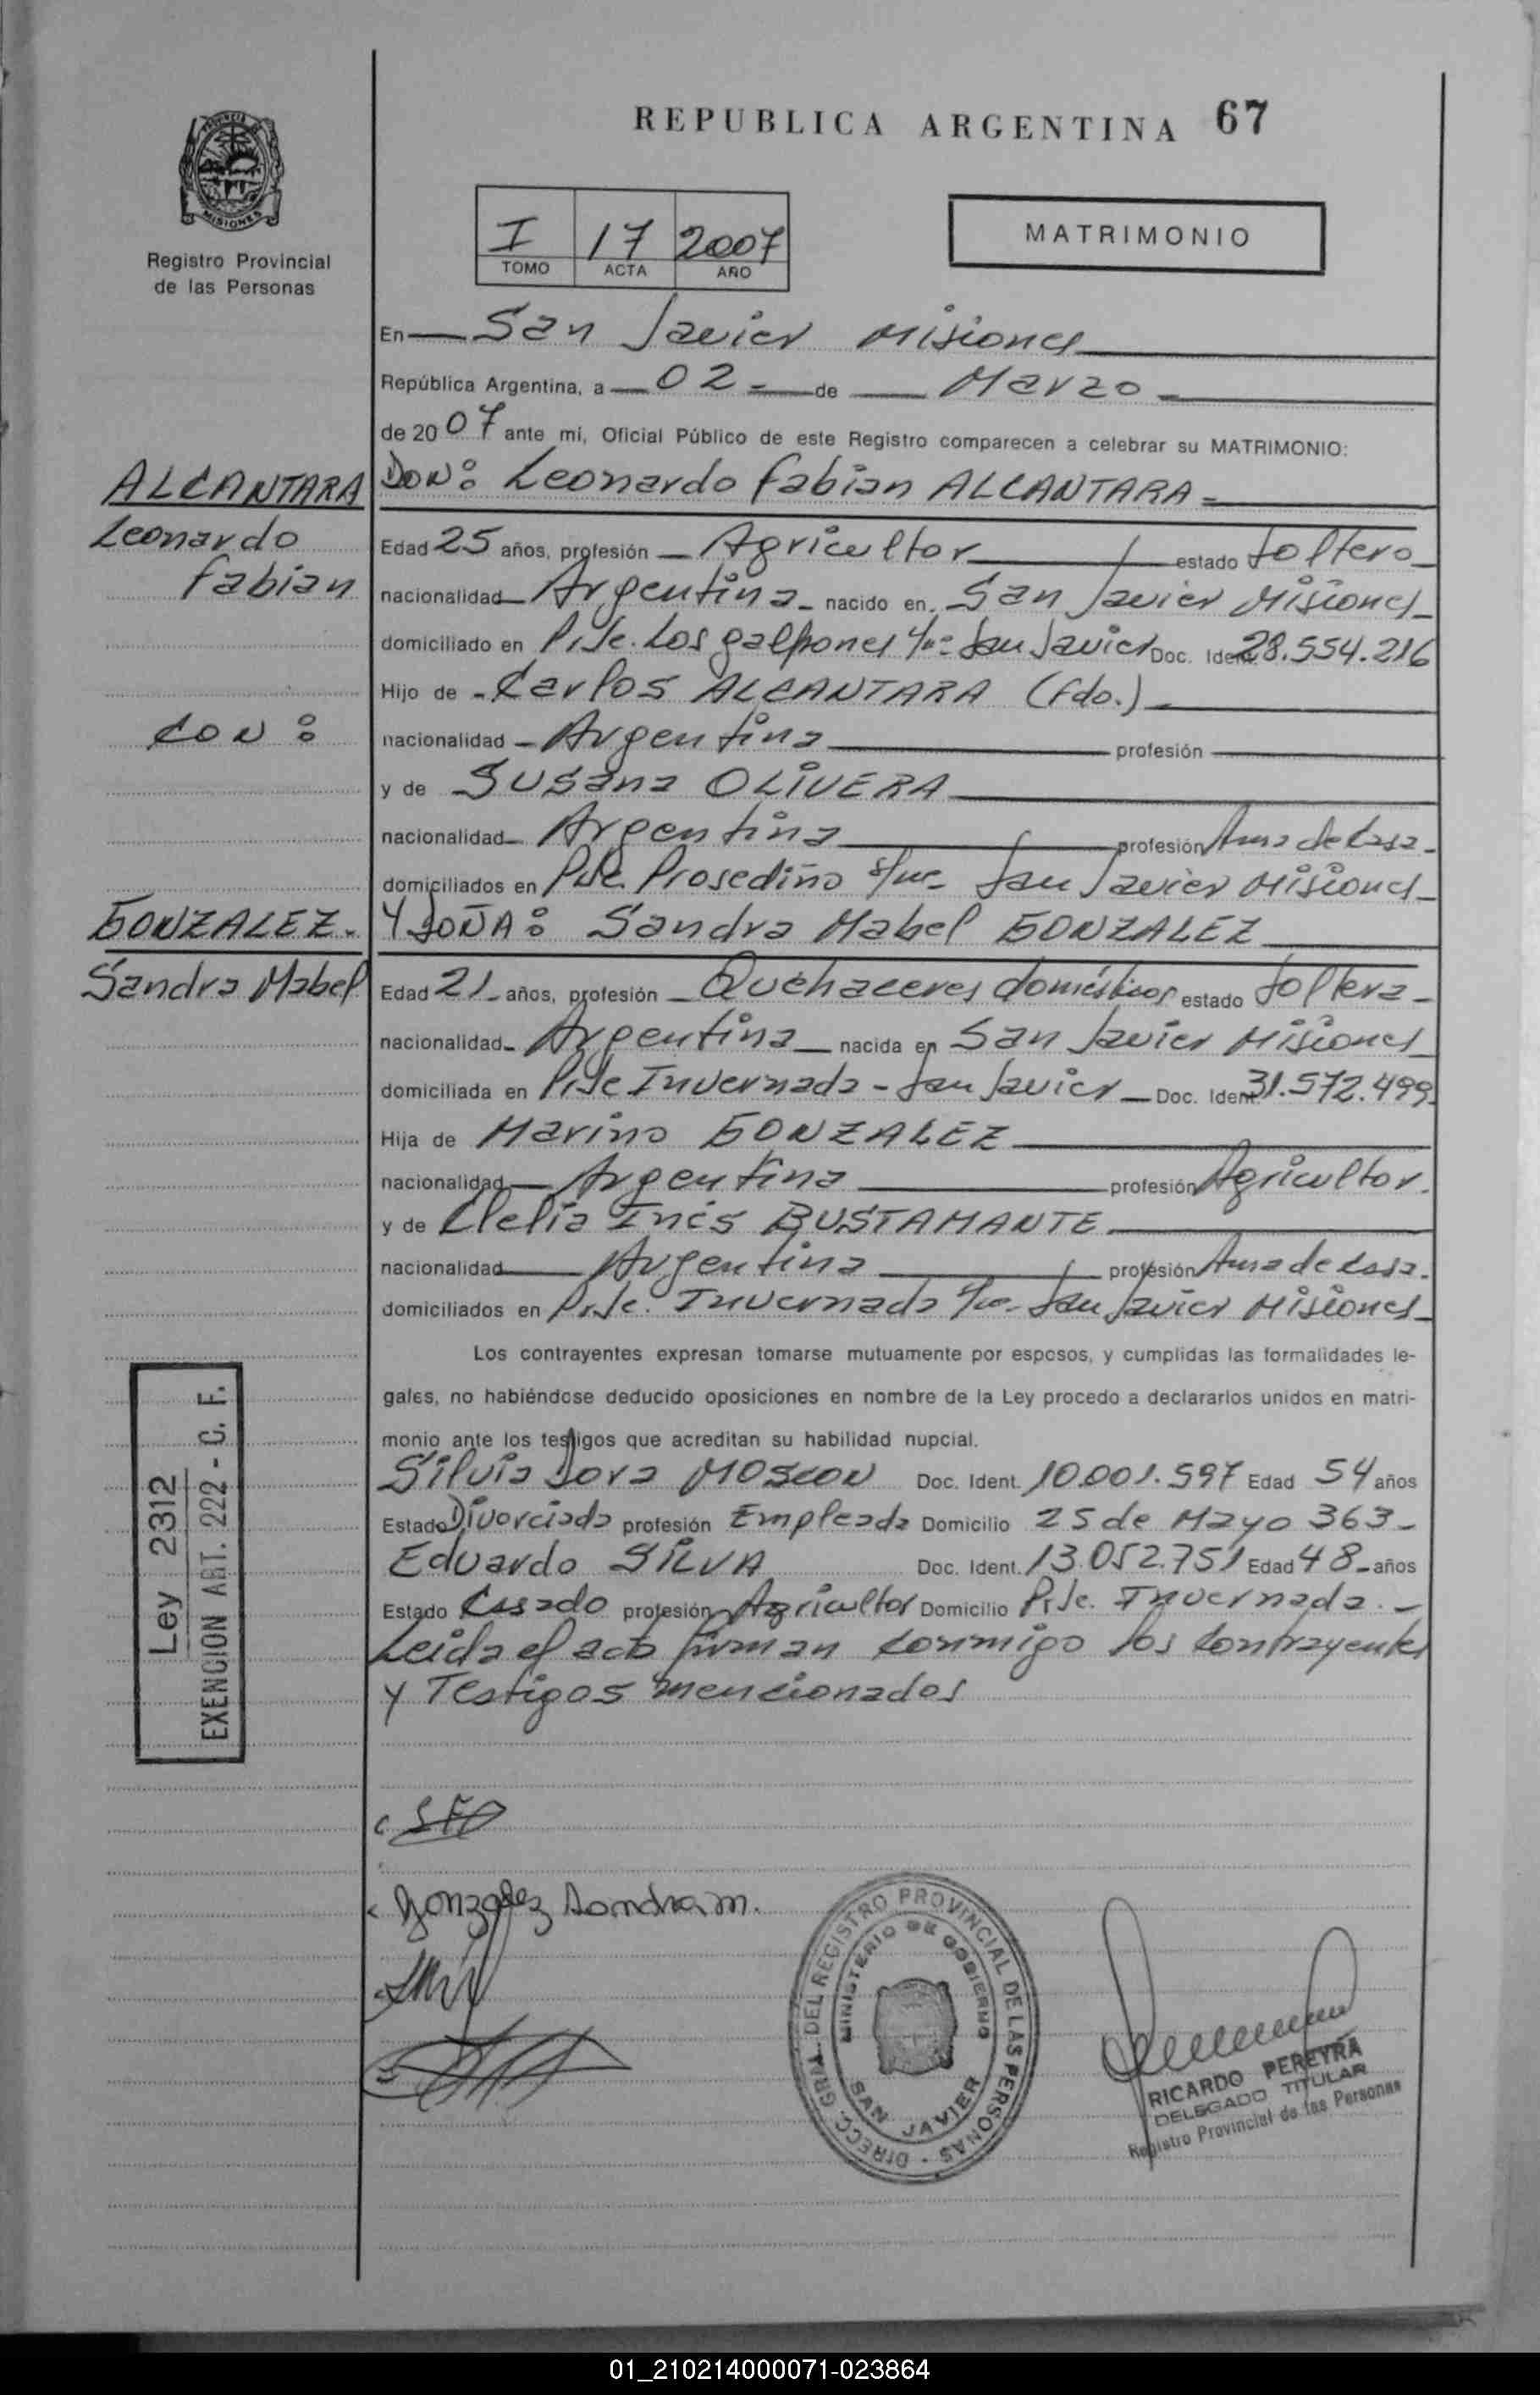 REPUBLICA ARGENTINA 67
PROVINCIA DE
MISIONES
Registro Provincial
de las Personas
I 17 2007
TOMO ACTA AÑO
MATRIMONIO
En San Javier Misiones
República Argentina, a 02 de Marzo
de 2007 ante mí, Oficial Público de este Registro comparecen a celebrar su MATRIMONIO:
ALCANTARA
Leonardo
Fabian
CON:
GONZALEZ.
Sandra Mabel
DON: Leonardo Fabian ALCANTARA
Edad 25 años, profesión Agricultor estado Soltero
nacionalidad Argentina nacido en San Javier Misiones
domiciliado en Pje. Los galpones San Javier Doc. Ident. 28.554.216
Hijo de Carlos ALCANTARA (Fdo.)
nacionalidad Argentina profesión
y de Susana OLIVERA
nacionalidad Argentina profesión Ama de Casa
domiciliados en Pje. Prosediño San Javier Misiones
Y DOÑA: Sandra Mabel GONZALEZ
Edad 21 años, profesión Quehaceres domésticos estado Soltera
nacionalidad Argentina nacida en San Javier Misiones
domiciliada en Pje Invernada - San Javier Doc. Ident. 31.572.499
Hija de Marino GONZALEZ
nacionalidad Argentina profesión Agricultor.
y de Clelia Inés BUSTAMANTE
nacionalidad Argentina profesión Ama de Casa.
domiciliados en Pje. Invernada San Javier Misiones
Los contrayentes expresan tomarse mutuamente por esposos, y cumplidas las formalidades le-
gales, no habiéndose deducido oposiciones en nombre de la Ley procedo a declararlos unidos en matri-
monio ante los testigos que acreditan su habilidad nupcial.
Silvia Dora MOSCON Doc. Ident. 10.001.597 Edad 54 años
Estado Divorciada profesión Empleada Domicilio 25 de Mayo 363
Eduardo SILVA Doc. Ident. 13.052.751 Edad 48 años
Estado Casado profesión Agricultor Domicilio Pje. Invernada.
Leida el acta firman conmigo los contrayentes
y Testigos mencionados
Ley 2312
EXENCION ART. 222 - C. F.
Gonzalez Sandra m.
DIRECC. GRAL. DEL REGISTRO PROVINCIAL DE LAS PERSONAS
MINISTERIO DE GOBIERNO
SAN JAVIER
RICARDO PEREYRA
DELEGADO TITULAR
Registro Provincial de las Personas
01_210214000071-023864